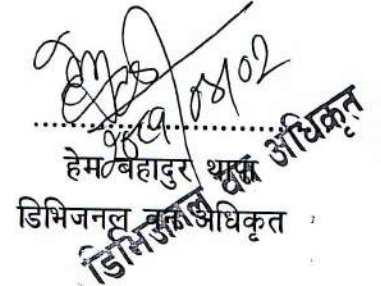 हेम बहादुर थापा
डिभिजनल वन अधिकृत
डिभिजनल वन अधिकृत